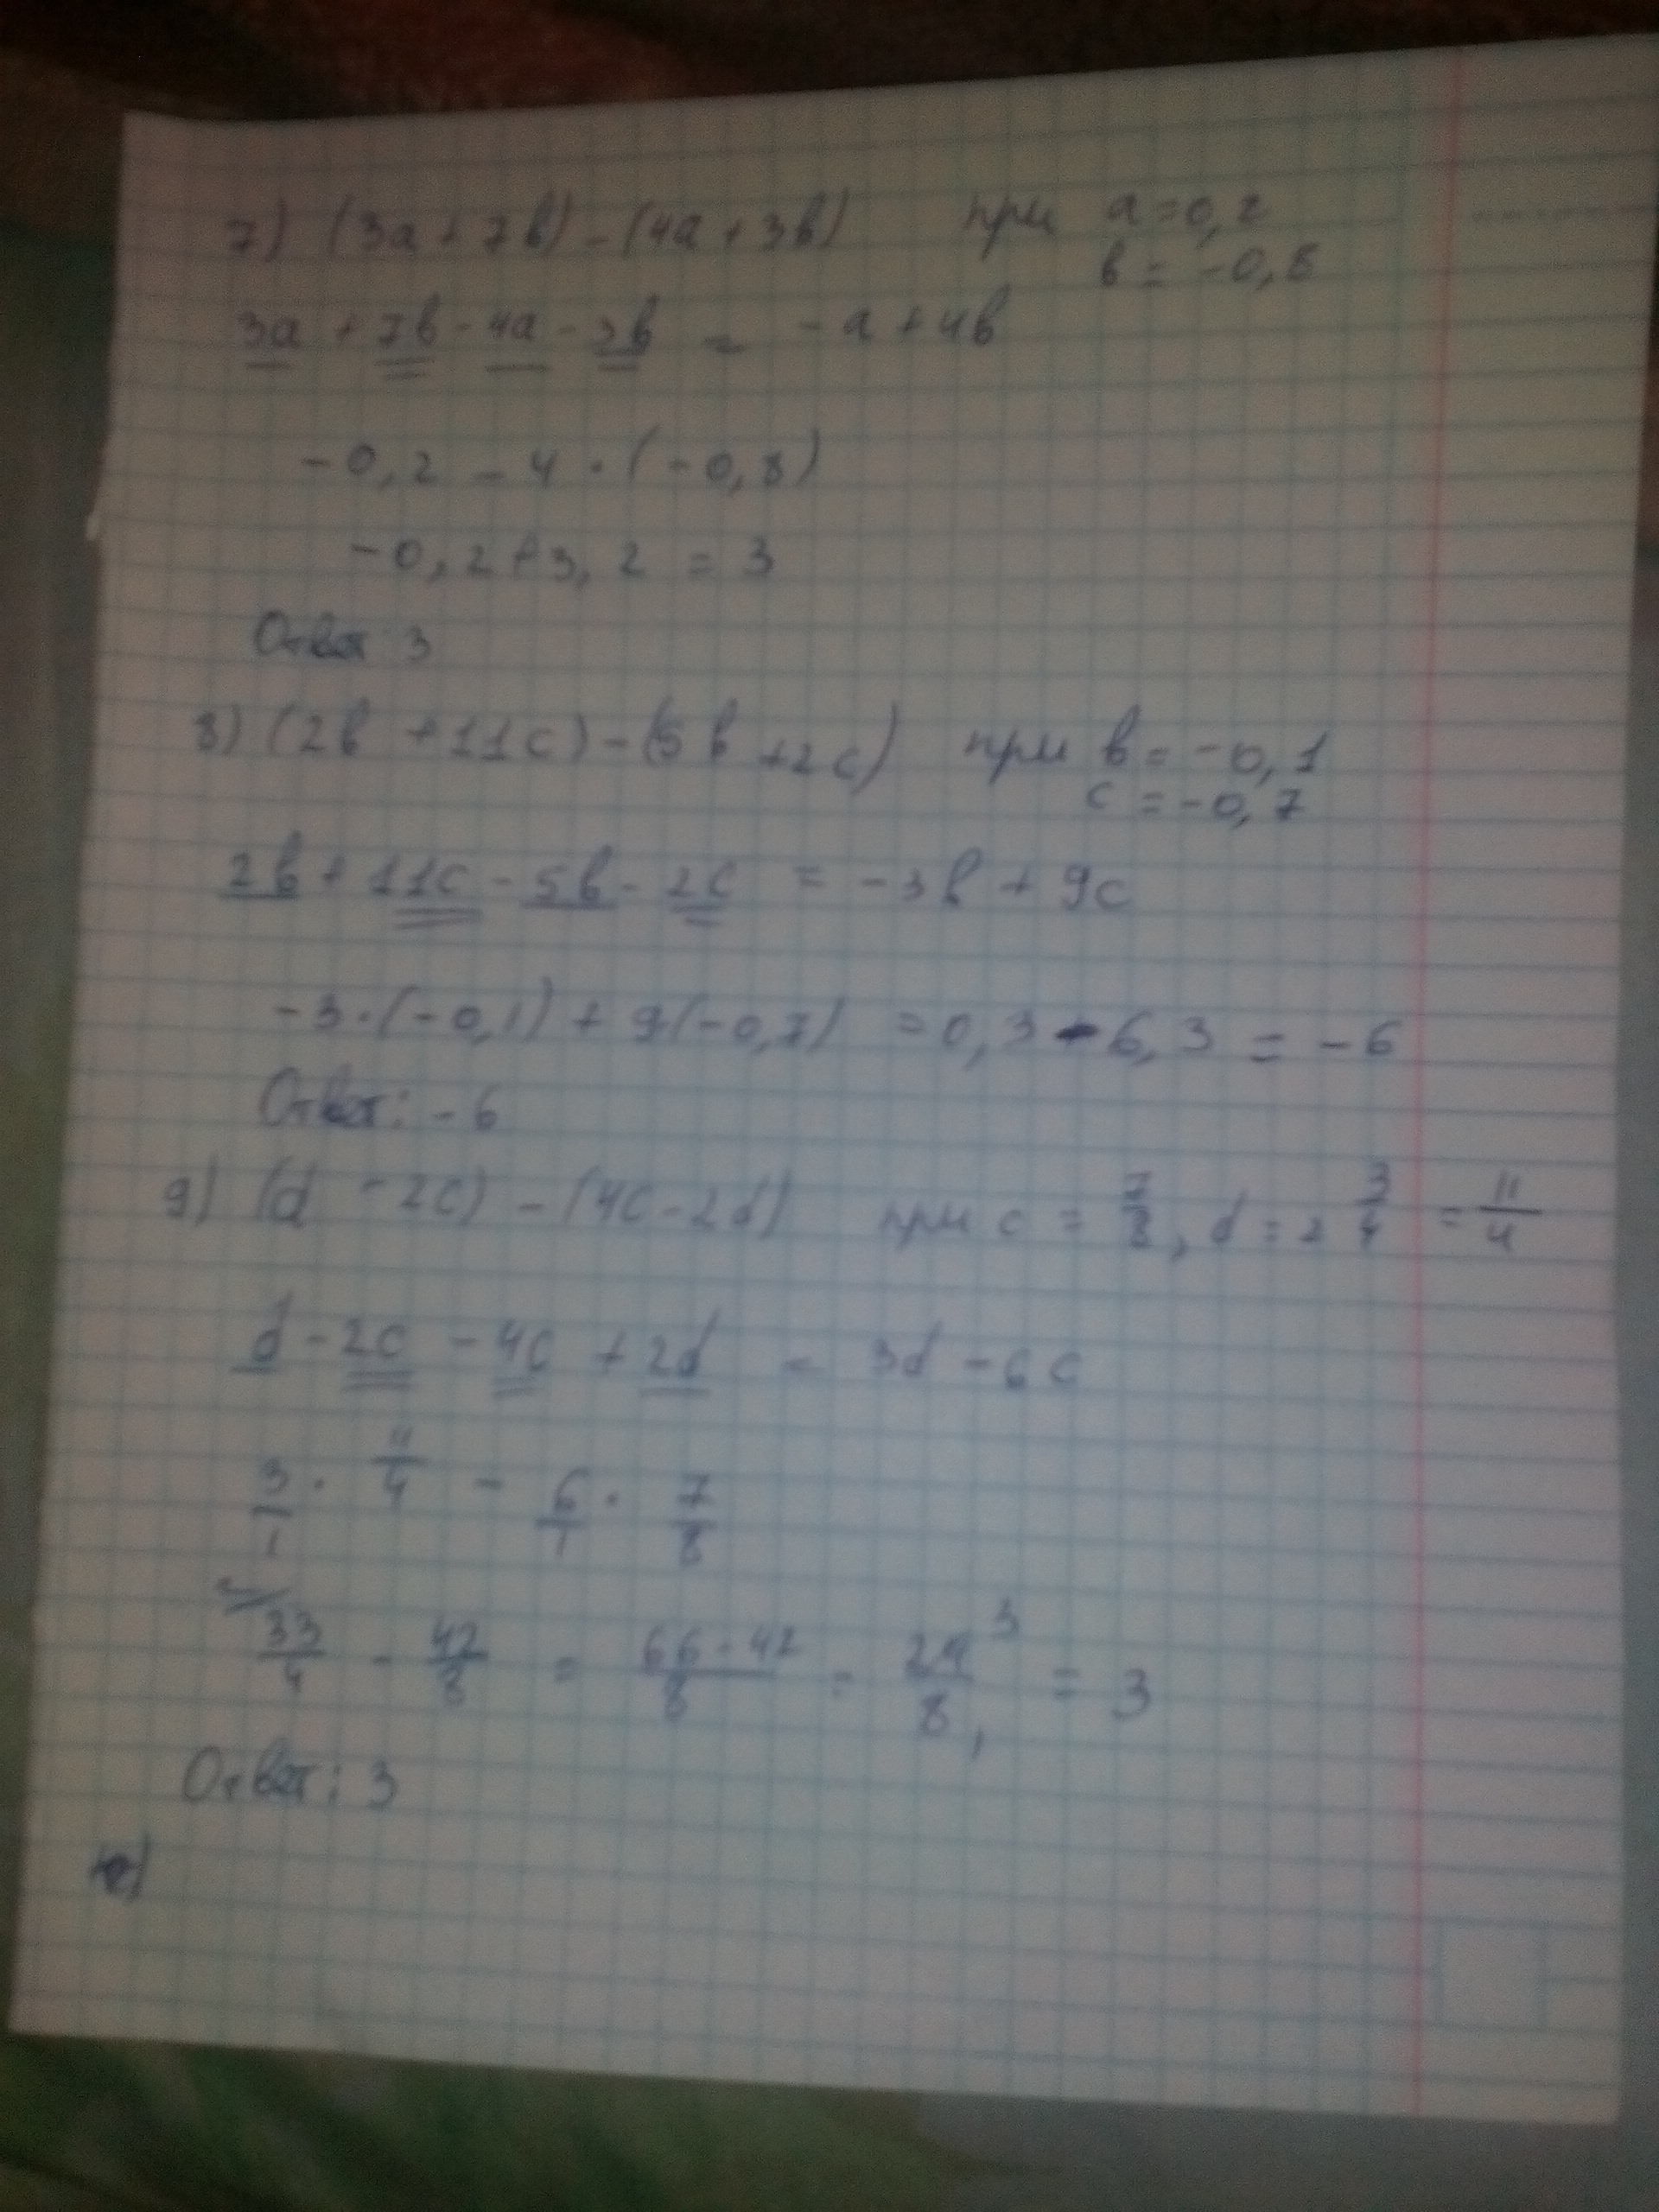 7) (3a + 7b) - (4a + 3b) при a = 0,2
b = -0,8
3a + 7b - 4a - 3b = -a + 4b
-0,2 - 4 · (-0,8)
-0,2 + 3,2 = 3
Ответ 3
8) (2b + 11c) - (5b + 2c) при b = -0,1
c = -0,7
2b + 11c - 5b - 2c = -3b + 9c
-3 · (-0,1) + 9 (-0,7) = 0,3 - 6,3 = -6
Ответ: -6
9) (d - 2c) - (4c - 2d) при c = 7/8, d = 2 3/4 = 11/4
d - 2c - 4c + 2d = 3d - 6c
3/1 · 11/4 - 6/1 · 7/8
= 33/4 - 42/8 = 66 - 42/8 = 24 3/8 1 = 3
Ответ: 3